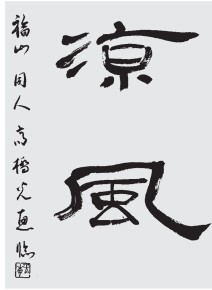 涼風
福山 同人 高橋光恵臨